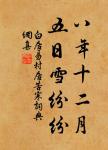 八年十二月
五日雪紛紛
白居易村居苦寒詞典
網集